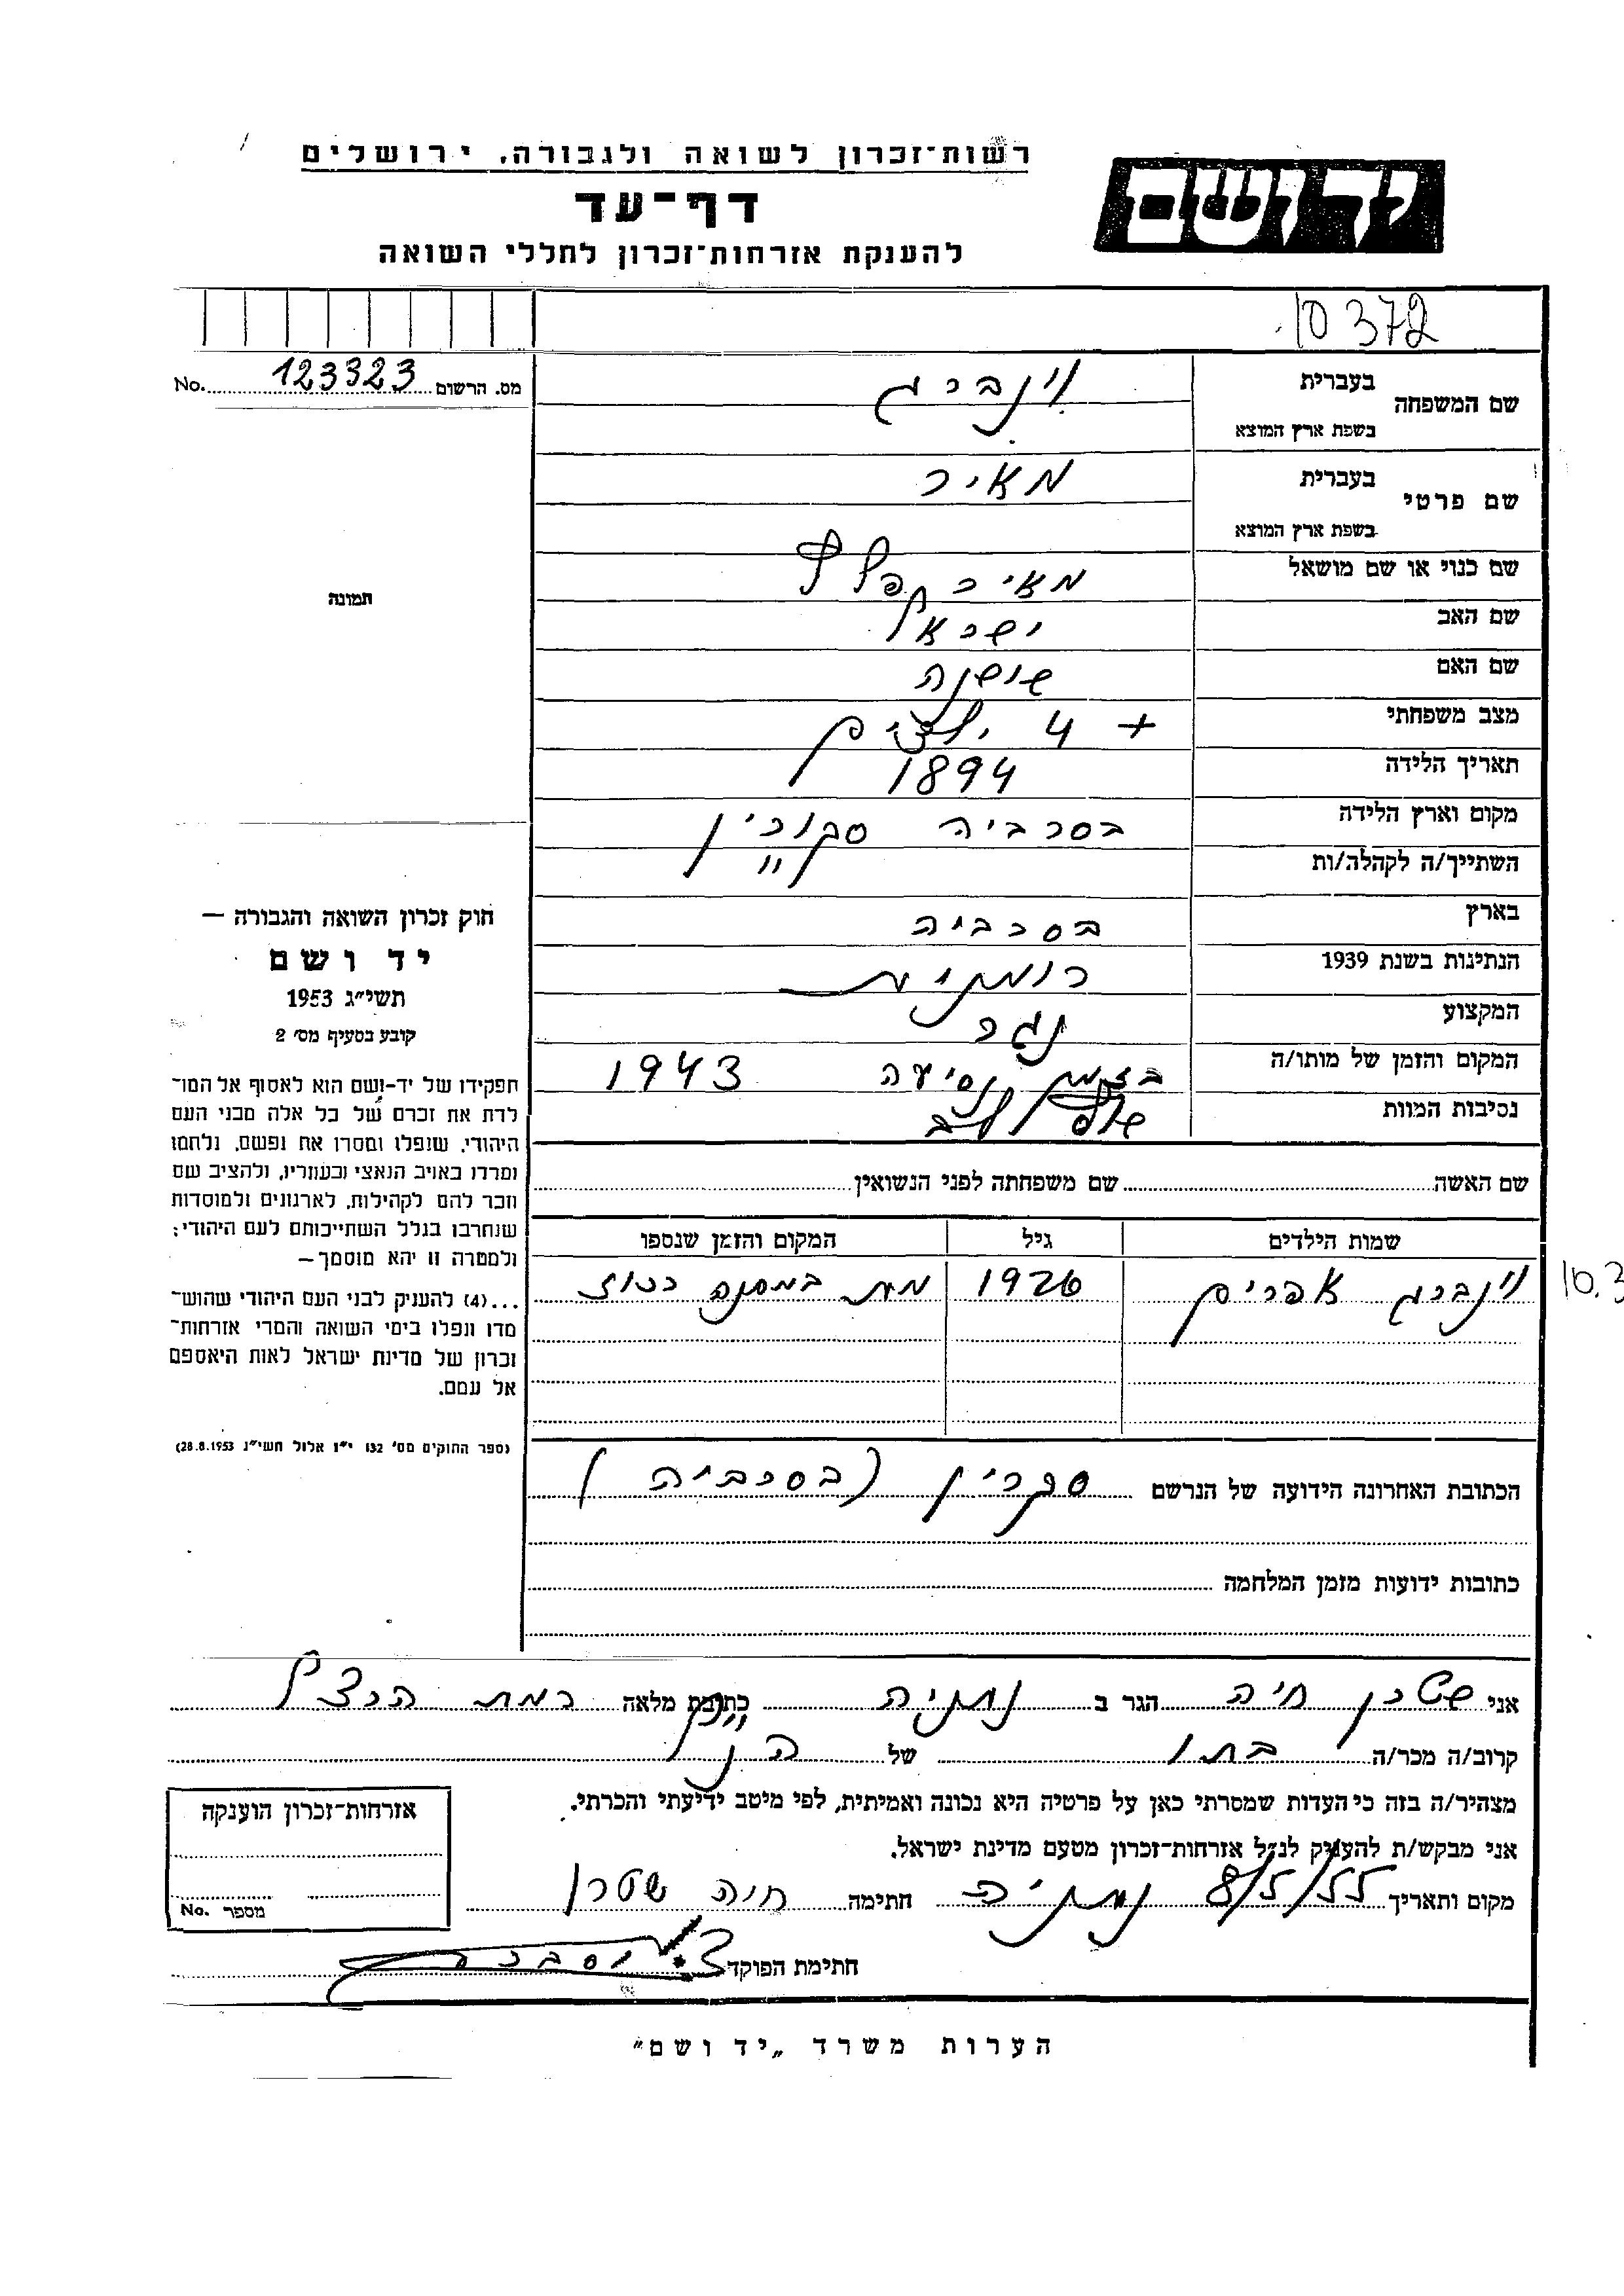 רשות־זכרון לשואה ולגבורה, ירושלים
יד ושם
דף־עד
להענקת אזרחות־זכרון לחללי השואה
10372
מס. הרשום 123323 No.
שם המשפחה בעברית וינברג
בשפת ארץ המוצא
שם פרטי בעברית מאיר
בשפת ארץ המוצא
שם כנוי או שם מושאל מאיר
שם האב ישראל
שם האם שושנה
מצב משפחתי + 4 ילדים
תאריך הלידה 1894
מקום וארץ הלידה בסרביה
השתייך/ה לקהלה/ות "
בארץ בסרביה
הנתינות בשנת 1939 רומנית
המקצוע נגר
המקום והזמן של מותו/ה בזמן נסיעה 1943
נסיבות המוות
תמונה
חוק זכרון השואה והגבורה —
יד ושם
תשי״ג 1953
קובע בסעיף מס׳ 2
תפקידו של יד־ושם הוא לאסוף אל המו־
לדת את זכרם של כל אלה מבני העם
היהודי, שנפלו ומסרו את נפשם, נלחמו
ומרדו באויב הנאצי ובעוזריו, ולהציב שם
וזכר להם לקהילות, לארגונים ולמוסדות
שנחרבו בגלל השתייכותם לעם היהודי;
ולמטרה זו יהא מוסמך—
...(4) להעניק לבני העם היהודי שהוש־
מדו ונפלו בימי השואה והמרי אזרחות־
זכרון של מדינת ישראל לאות היאספם
אל עמם.
(ספר החוקים מס׳ 132 י״ז אלול תשי״ג 28.8.1953)
שם האשה שם משפחתה לפני הנשואין
שמות הילדים גיל המקום והזמן שנספו
וינברג אפרים 1926 מת במסנה
10.3
הכתובת האחרונה הידועה של הנרשם סקרין (בסרביה)
כתובות ידועות מזמן המלחמה
אני שטרן חיה הגר ב נתניה כתובת מלאה רמת הרצל
קרוב/ה מכר/ה בתו של הנ"ל
מצהיר/ה בזה כי העדות שמסרתי כאן על פרטיה היא נכונה ואמיתית, לפי מיטב ידיעתי והכרתי.
אני מבקש/ת להעניק לנ״ל אזרחות־זכרון מטעם מדינת ישראל.
מקום ותאריך 8/5/55 נתניה חתימה חיה שטרן
חתימת הפוקד
אזרחות־זכרון הוענקה
מספר No.
הערות משרד „יד ושם״